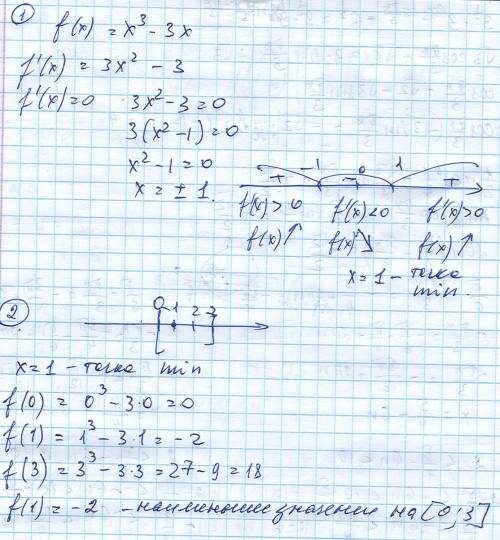 1 f(x) = x³ - 3x
f'(x) = 3x² - 3
f'(x) = 0 3x² - 3 = 0
3(x² - 1) = 0
x² - 1 = 0
x = ± 1.
-1 0 1
+ - +
f'(x) > 0 f'(x) < 0 f'(x) > 0
f(x) ↑ f(x) ↘ f(x) ↑
x = 1 - точка
min.
2 0 1 2 3
x = 1 - точка min
f(0) = 0³ - 3·0 = 0
f(1) = 1³ - 3·1 = -2
f(3) = 3³ - 3·3 = 27 - 9 = 18
f(1) = -2 - наименьшее значение на [0; 3]